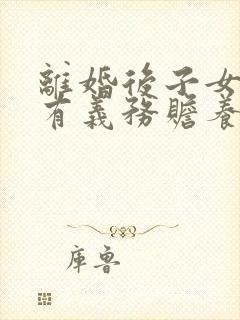 離婚後子女
有義務贍養
庫魯